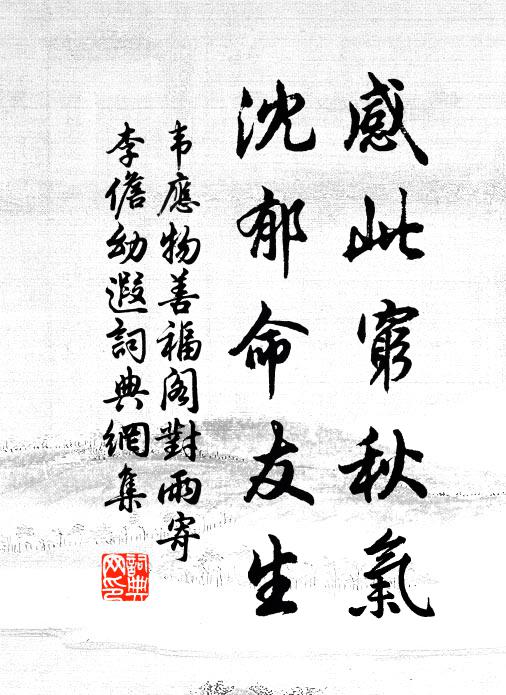 感此窮秋氣
沈郁命友生
韦應物善福阁對雨寄
李儋幼遐詞典網集
詞典
网印